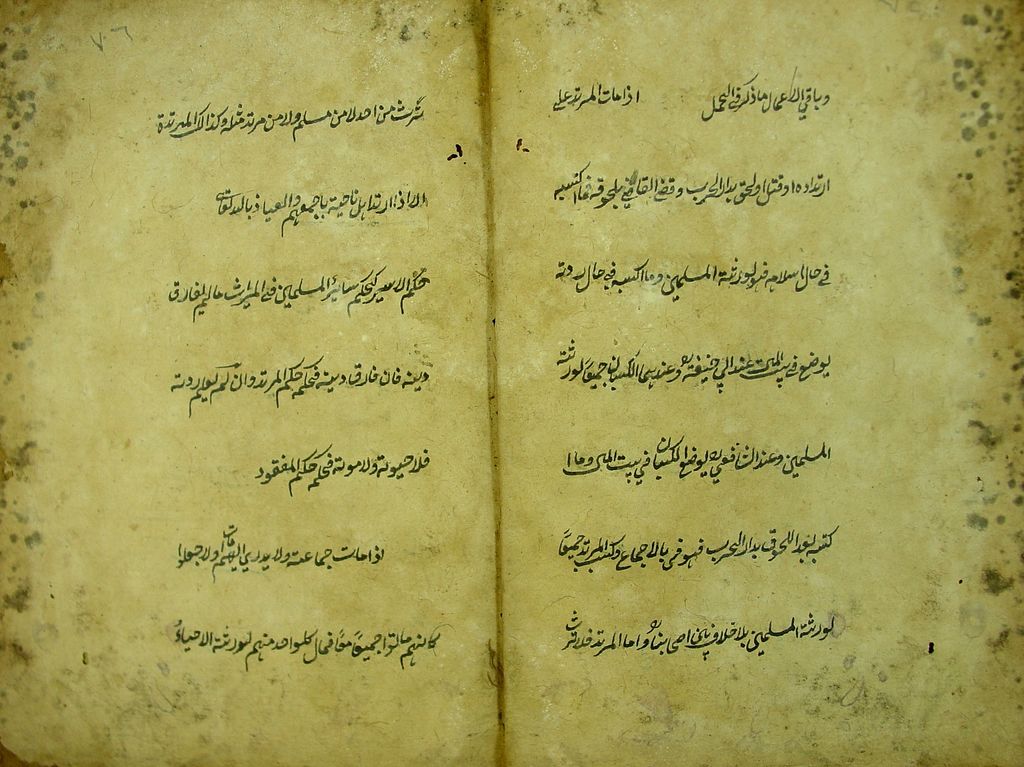 وباقي الاعمال ما ذكر في الحمل اذا مات المرتد على
ارتداده او قتل او لحق بدار الحرب وقضى القاضي بلحوقه فما اكتسبه
في حال اسلامه فهو لورثته المسلمين وما اكتسبه في حال ردته
يوضع في بيت المال عند ابي حنيفة وعندهما الكسبان جميعا لورثته
المسلمين وعند الشافعي يوضع الكسبان في بيت المال وما ا
كتسبه بعد اللحوق بدار الحرب فهو في بالاجماع وكسب المرتدة جميعا
لورثته المسلمين بلا خلاف بين اصحابنا واما المرتد فلا يرث
٧٦
يرث من احد لا من مسلم ولا من مرتد مثله وكذلك المرتدة
الا اذا ارتد اهل ناحية باجمعهم والعياذ بالله تعالى
حكم الاسير كحكم سائر المسلمين في الميراث مالم يفارق
دينه فان فارق دينه فحكمه حكم المرتد وان لم يعلم ردته
فلا حيوته ولا موته فحكمه حكم المفقود
اذا مات جماعة ولا يدري ايهم مات اولا جعلوا
كانهم ماتوا جميعا معا فمال كل واحد منهم لورثته الاحياء